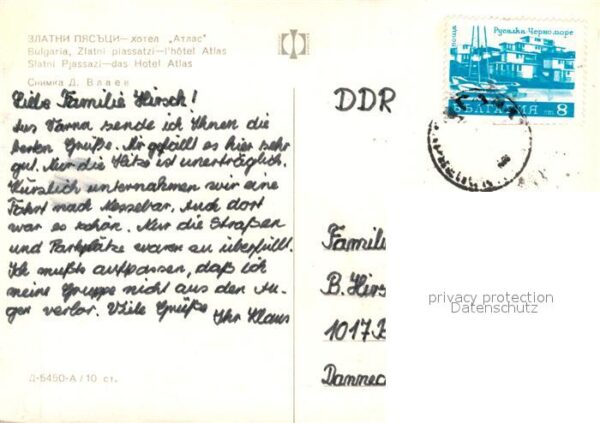 ЗЛАТНИ ПЯСЪЦИ — хотел „Атлас"
Bulgaria, Zlatni piassatzi—l'hôtel Atlas
Slatni Pjassazi—das Hotel Atlas
Снимка Д. Влаев
Liebe Familie Hirsch!
Aus Varna sende ich Ihnen die
besten Grüße. Mir gefällt es hier sehr
gut. Nur die Hitze ist unerträglich.
Kürzlich unternahmen wir eine
Fahrt nach Nessebar. Auch dort
war es schön. Nur die Straßen
und Parkplätze waren so überfüllt.
Ich mußte aufpassen, daß ich
meine Gruppe nicht aus den Au-
gen verlor. Viele Grüße
Ihr Klaus
Д-5450-А / 10 ст.
поща
Русалка Черно море
БЪЛГАРИЯ
ст. 8
DDR
Famili
B. Hirs
1017 B
Dannec
privacy protection
Datenschutz